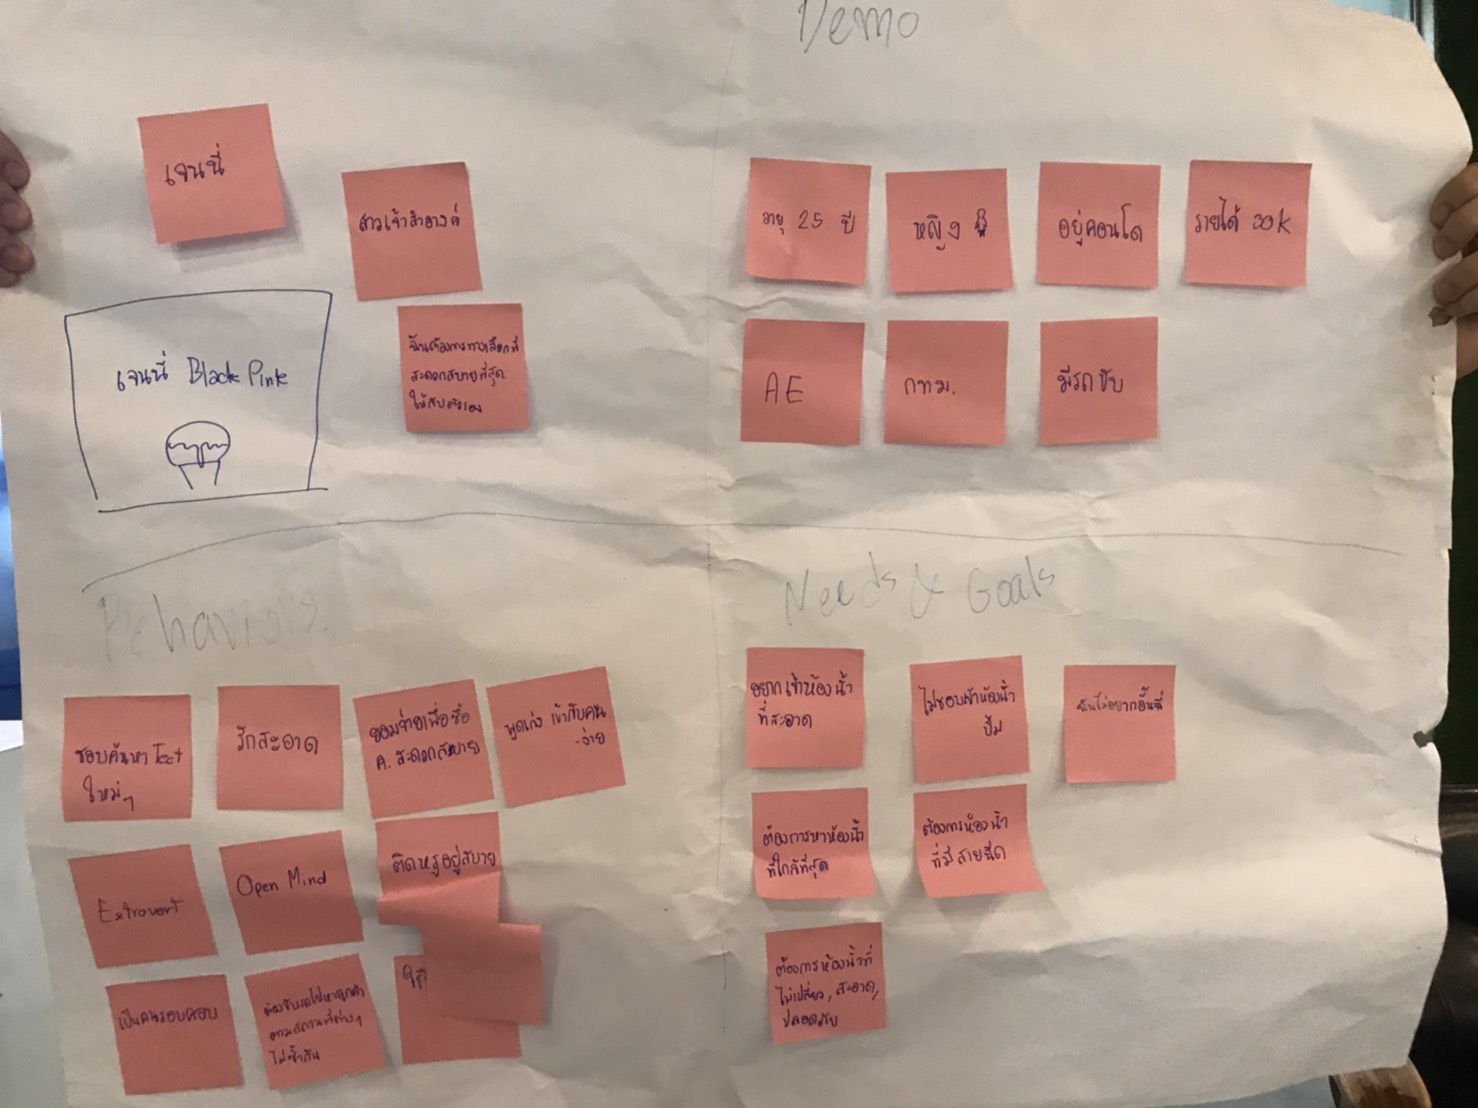 เจนนี่
สาวเจ้าสำอางค์
ฉันต้องการทางเลือกที่
สะดวกสบายที่สุด
ให้กับตัวเอง
เจนนี่ Black Pink
Demo
อายุ 25 ปี
หญิง
อยู่คอนโด
รายได้ 30k
AE
กทม.
มีรถขับ
Behaviors
ชอบค้นหา Tect
ใหม่ๆ
รักสะอาด
ยอมจ่ายเพื่อซื้อ
ค. สะดวกสบาย
พูดเก่ง เข้ากับคน
ง่าย
Extrovert
Open Mind
ติดหรูอยู่สบาย
เป็นคนรอบคอบ
ต้องขับรถไปหาลูกค้า
ตามสถานที่ต่างๆ
ไม่ซ้ำกัน
Needs & Goals
อยากเข้าห้องน้ำ
ที่สะอาด
ไม่ชอบเข้าห้องน้ำ
ปั๊ม
ฉันไม่อยากอั้นฉี่
ต้องการหาห้องน้ำ
ที่ใกล้ที่สุด
ต้องการห้องน้ำ
ที่มีสายฉีด
ต้องการห้องน้ำที่
ไม่เปลี่ยว, สะอาด,
ปลอดภัย